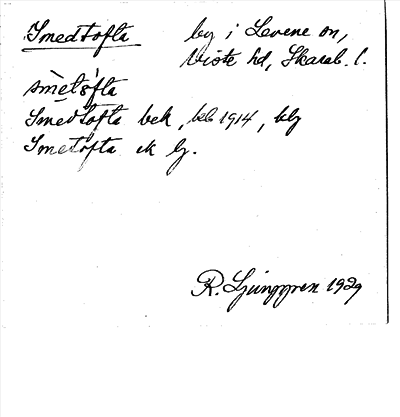 Smedtofta by i Levene sn,
Viste hd, Skarab. l.
smè̱tȯ́fta
Smedtofta bek, kb 1914, kbg
Smetofta ek bg.
R. Ljunggren 1929